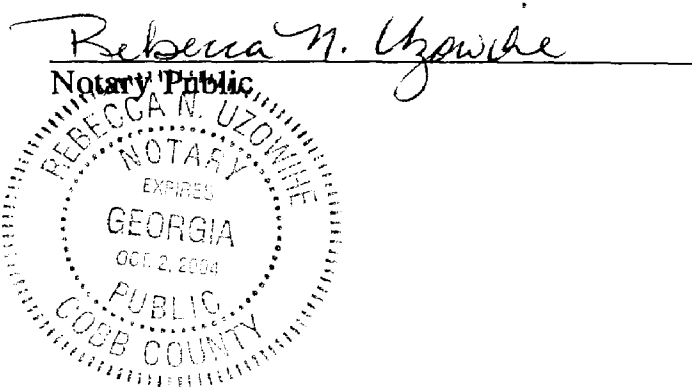 Rebecca N. Uzowihe
Notary Public
REBECCA N. UZOWIHE
NOTARY
EXPIRES
GEORGIA
OCT. 2, 2004
PUBLIC
COBB COUNTY